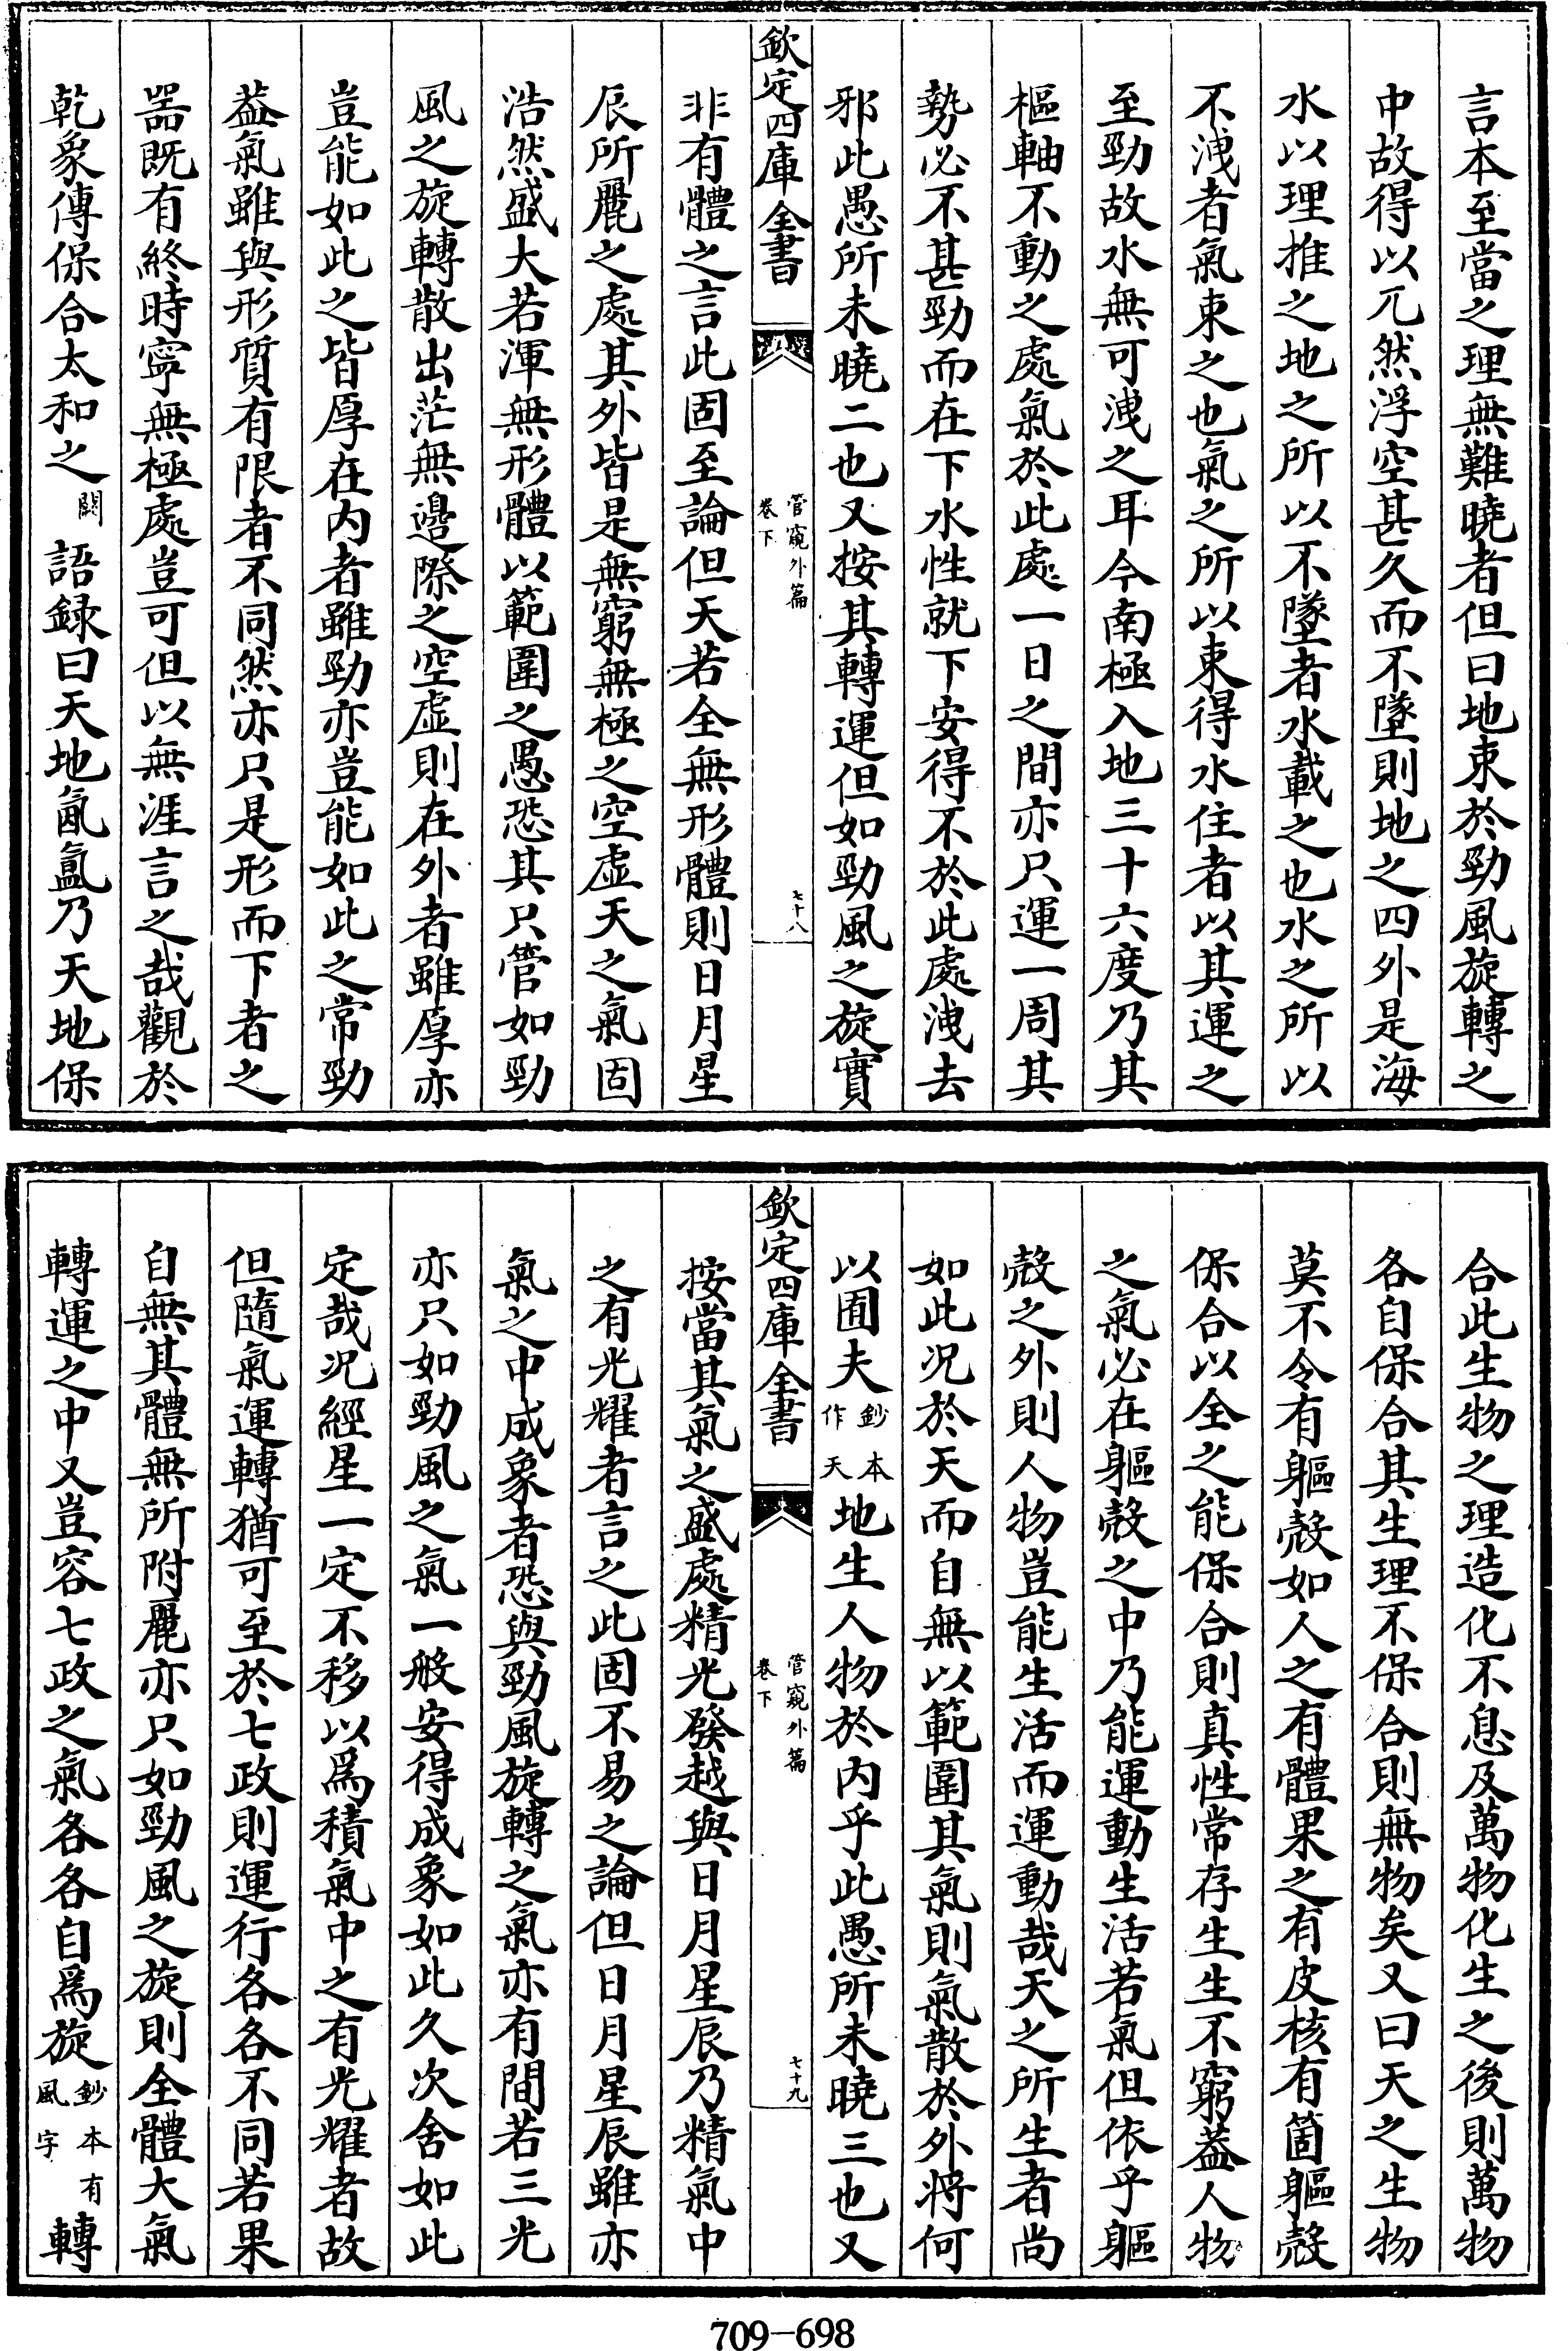 言本至當之理無難曉者但曰地束於勁風旋轉之
中故得以兀然浮空甚久而不墜則地之四外是海
水以理推之地之所以不墜者水載之也水之所以
不洩者氣束之也氣之所以束得水住者以其運之
至勁故水無可洩之耳今南極入地三十六度乃其
樞軸不動之處氣於此處一日之間亦只運一周其
勢必不甚勁而在下水性就下安得不於此處洩去
邪此愚所未曉二也又按其轉運但如勁風之旋實
欽定四庫全書
管窺外篇
卷下
七十八
非有體之言此固至論但天若全無形體則日月星
辰所麗之處其外皆是無窮無極之空虛天之氣固
浩然盛大若渾無形體以範圍之愚恐其只管如勁
風之旋轉散出茫無邊際之空虛則在外者雖厚亦
豈能如此之皆厚在内者雖勁亦豈能如此之常勁
葢氣雖與形質有限者不同然亦只是形而下者之
噐既有終時寧無極處豈可但以無涯言之哉觀於
乾象傳保合太和之闕語録曰天地氤氳乃天地保
合此生物之理造化不息及萬物化生之後則萬物
各自保合其生理不保合則無物矣又曰天之生物
莫不令有軀殼如人之有體果之有皮核有箇軀殼
保合以全之能保合則真性常存生生不窮葢人物
之氣必在軀殼之中乃能運動生活若氣但依乎軀
殼之外則人物豈能生活而運動哉天之所生者尚
如此况於天而自無以範圍其氣則氣散於外將何
以囿夫鈔本作天地生人物於内乎此愚所未曉三也又
欽定四庫全書
管窺外篇
卷下
七十九
按當其氣之盛處精光發越與日月星辰乃精氣中
之有光耀者言之此固不易之論但日月星辰雖亦
氣之中成象者恐與勁風旋轉之氣亦有間若三光
亦只如勁風之氣一般安得成象如此久次舍如此
定哉况經星一定不移以為積氣中之有光耀者故
但隨氣運轉猶可至於七政則運行各各不同若果
自無其體無所附麗亦只如勁風之旋則全體大氣
轉運之中又豈容七政之氣各各自為旋鈔本有風字轉
709-698